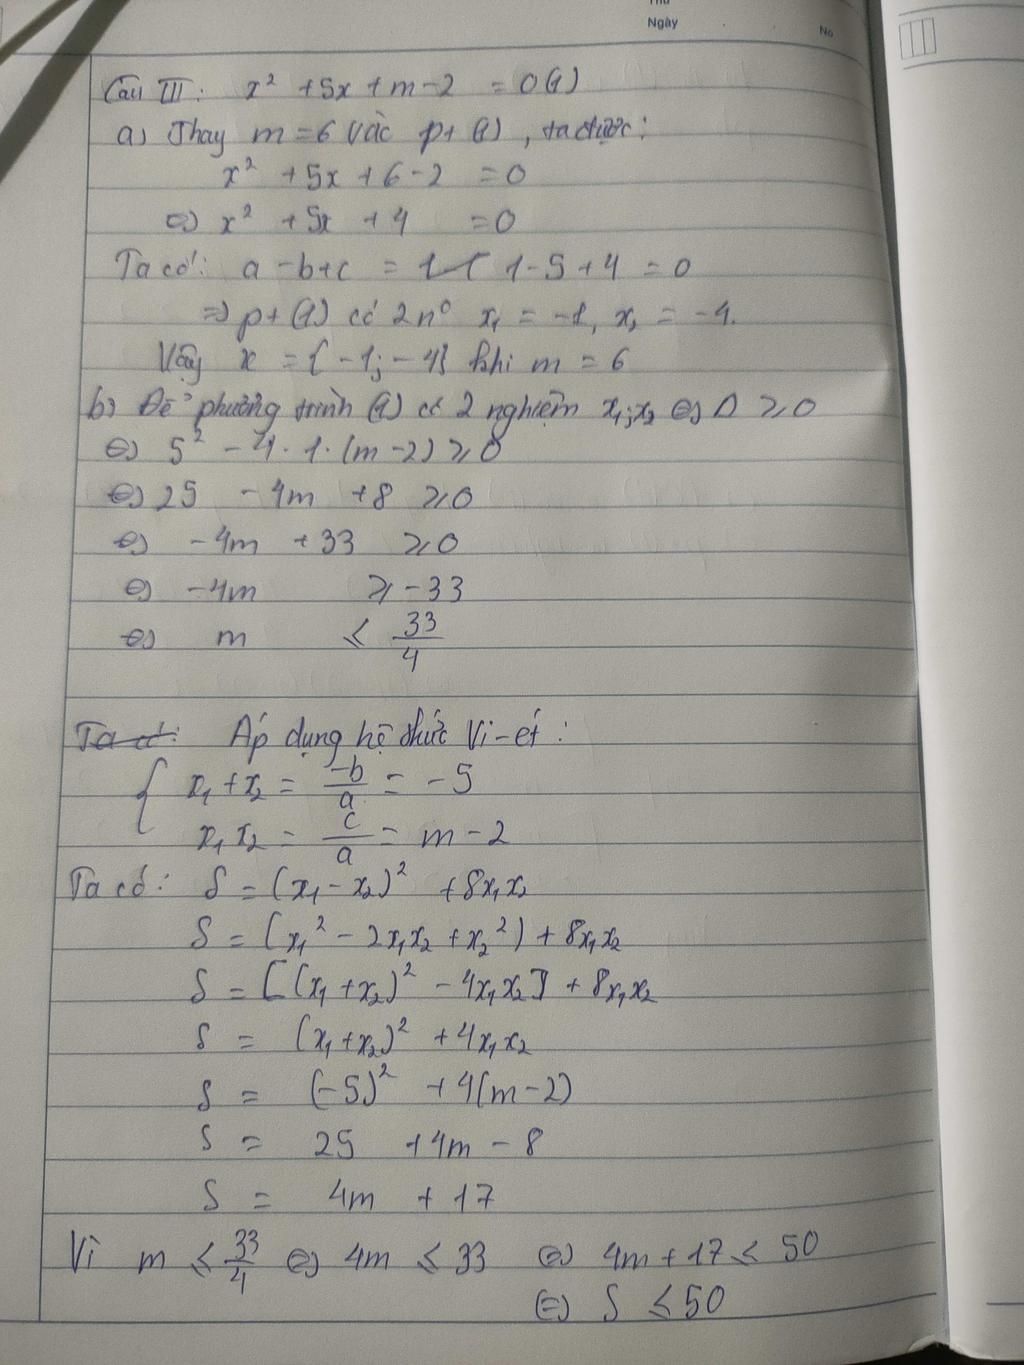 Thứ
Ngày
No
Câu III: x² + 5x + m - 2 = 0 (1)
a) Thay m = 6 vào pt (1), ta được:
x² + 5x + 6 - 2 = 0
⇔ x² + 5x + 4 = 0
Ta có: a - b + c = 1 - 5 + 4 = 0
⇒ pt (1) có 2 n⁰ x₁ = -1, x₂ = -4.
Vậy x = {-1; -4} khi m = 6
b) Để phương trình (1) có 2 nghiệm x₁; x₂ ⇔ Δ ⩾ 0
⇔ 5² - 4 . 1 . (m - 2) ⩾ 0
⇔ 25 - 4m + 8 ⩾ 0
⇔ -4m + 33 ⩾ 0
⇔ -4m ⩾ -33
⇔ m ⩽ 33/4
Ta có: Áp dụng hệ thức Vi-ét:
{ x₁ + x₂ = -b/a = -5
x₁x₂ = c/a = m - 2
Ta có: S = (x₁ - x₂)² + 8x₁x₂
S = (x₁² - 2x₁x₂ + x₂²) + 8x₁x₂
S = [(x₁ + x₂)² - 4x₁x₂] + 8x₁x₂
S = (x₁ + x₂)² + 4x₁x₂
S = (-5)² + 4(m - 2)
S = 25 + 4m - 8
S = 4m + 17
Vì m ⩽ 33/4 ⇔ 4m ⩽ 33 ⇔ 4m + 17 ⩽ 50
⇔ S ⩽ 50